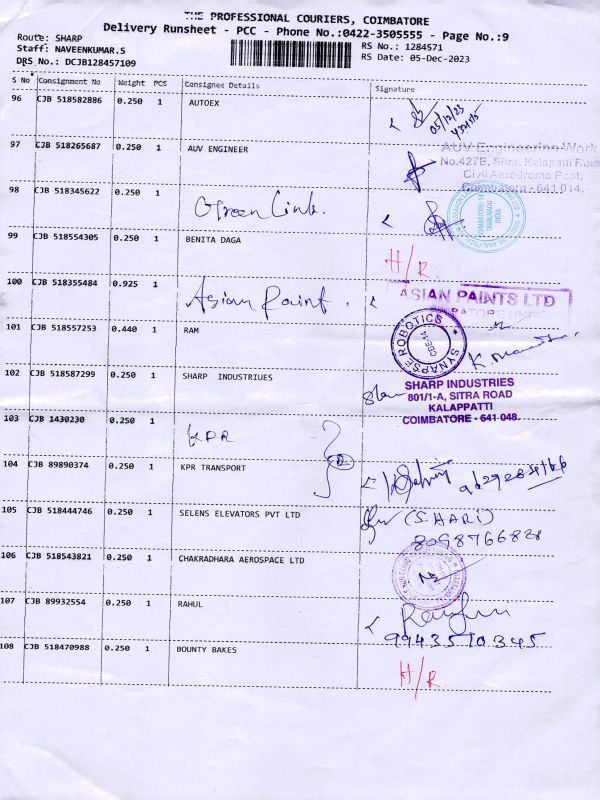 THE PROFESSIONAL COURIERS, COIMBATORE
Delivery Runsheet - PCC - Phone No.:0422-3505555 - Page No.:9
Route: SHARP
Staff: NAVEENKUMAR.S
DRS No.: DCJB128457109
RS No.: 1284571
RS Date: 05-Dec-2023
S No Consignment No Weight PCS Consignee Details Signature
96 CJB 518582886 0.250 1 AUTOEX
05/12/23
97 CJB 518265687 0.250 1 AUV ENGINEER
AUV Engineering Work
No.427E, Sitra, Kalapatti Road
Civil Aerodrome Post,
Coimbatore - 641 014.
98 CJB 518345622 0.250 1 Green Link.
COIMBATORE-14
TAMILNADU
INDIA
99 CJB 518554305 0.250 1 BENITA DAGA H/R
100 CJB 518355484 0.925 1 Asian Paint.
ASIAN PAINTS LTD
101 CJB 518557253 0.440 1 RAM
SYNAPSE ROBOTICS
CBE-14
102 CJB 518587299 0.250 1 SHARP INDUSTRIUES
SHARP INDUSTRIES
801/1-A, SITRA ROAD
KALAPPATTI
COIMBATORE - 641-048.
103 CJB 1430230 0.250 1 KPR
104 CJB 89890374 0.250 1 KPR TRANSPORT
105 CJB 518444746 0.250 1 SELENS ELEVATORS PVT LTD (S.HARI)
8098766828
106 CJB 518543821 0.250 1 CHAKRADHARA AEROSPACE LTD
107 CJB 89932554 0.250 1 RAHUL
9943570345
108 CJB 518470988 0.250 1 BOUNTY BAKES H/R